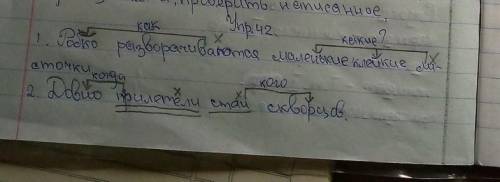 проверить написанное.
Упр. 42.
как какие?
1. Робко разворачиваются маленькие клейкие ли-
сточки.
когда кого
2. Давно прилетели стаи скворцов.